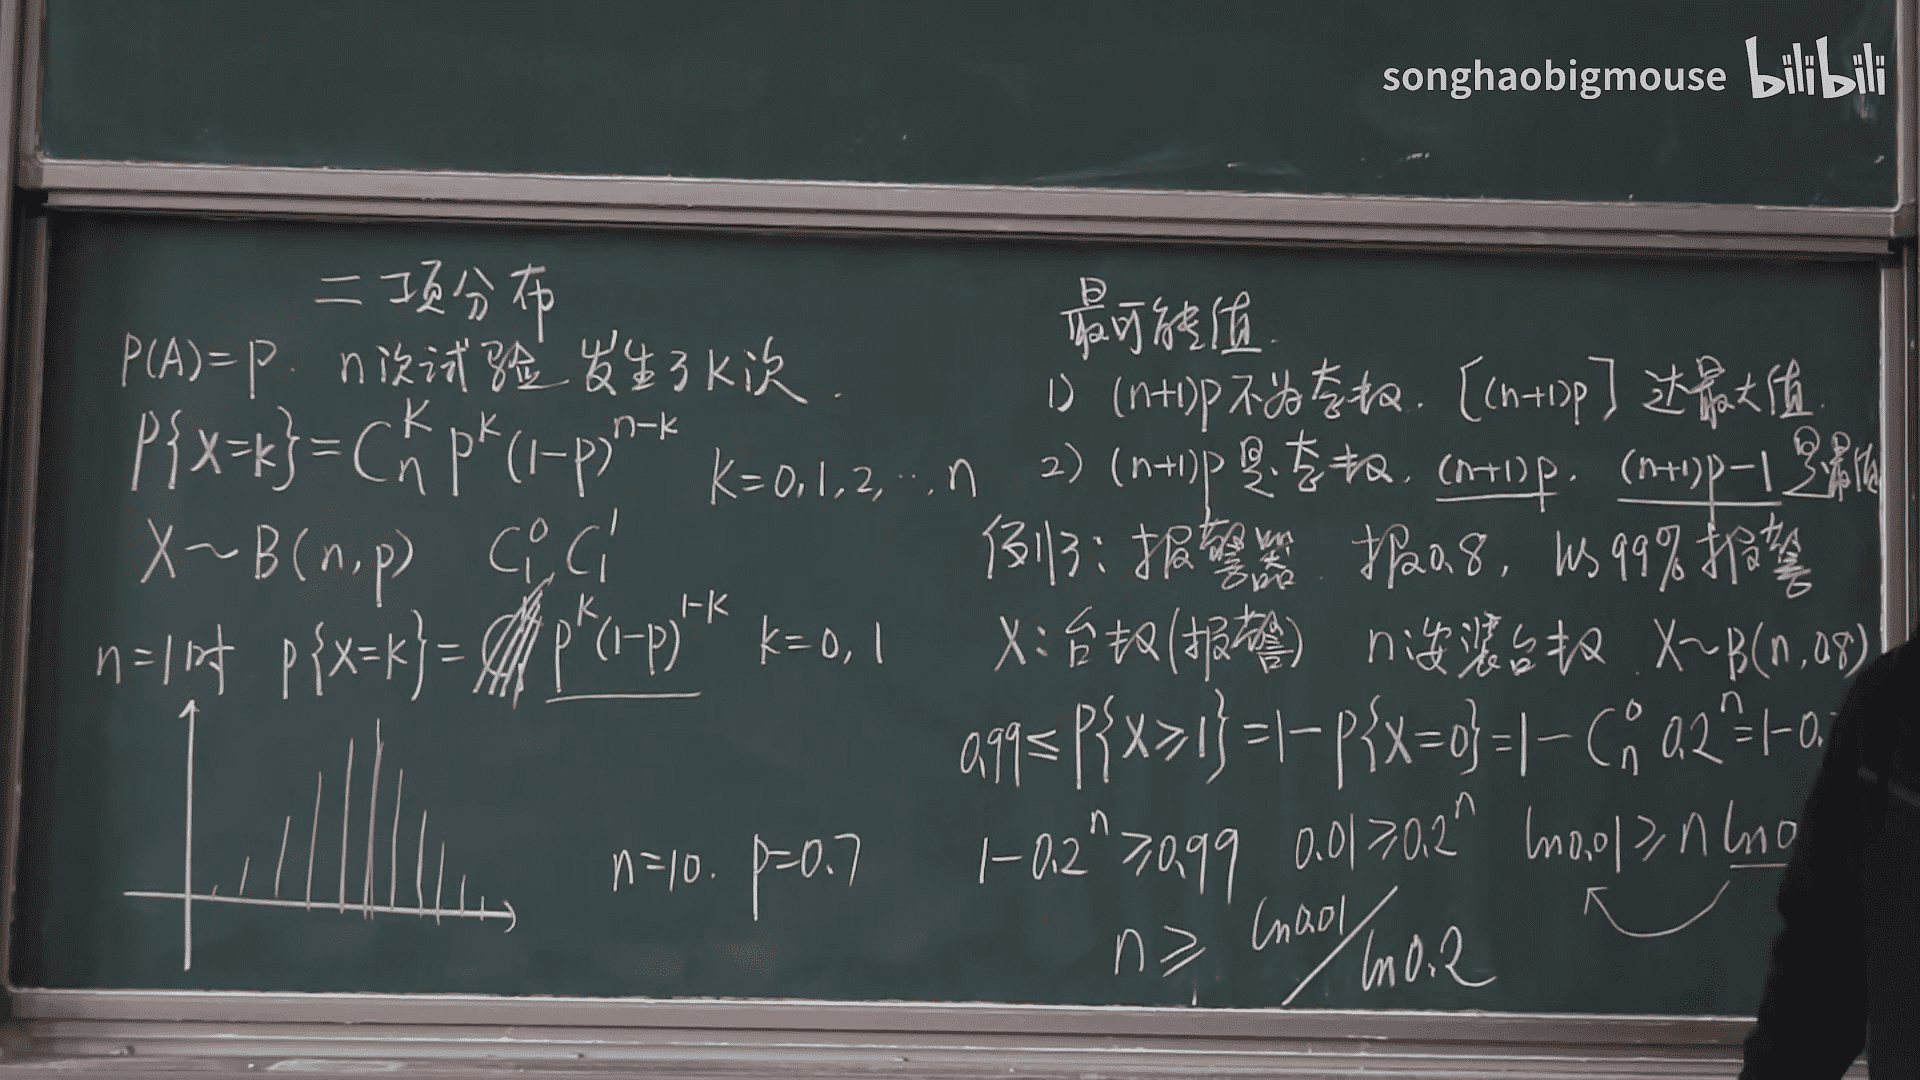 songhaobigmouse bilibili
二项分布
P(A)=p. n次试验 发生了k次.
P{X=k}=C_n^k p^k (1-p)^{n-k} k=0,1,2,…,n
X~B(n,p) C_1^0 C_1^1
n=1时 P{X=k}= p^k (1-p)^{1-k} k=0,1
n=10. p=0.7
最可能值.
1) (n+1)p不为整数. [(n+1)p] 达最大值.
2) (n+1)p是整数. (n+1)p. (n+1)p-1 是最值
例3: 报警器. 报0.8, 以99%报警
X:台数(报警) n:安装台数 X~B(n,0.8)
0.99≤P{X≥1}=1-P{X=0}=1-C_n^0 0.2^n=1-0.
1-0.2^n≥0.99 0.01≥0.2^n ln0.01≥n ln0
n≥ ln0.01/ln0.2